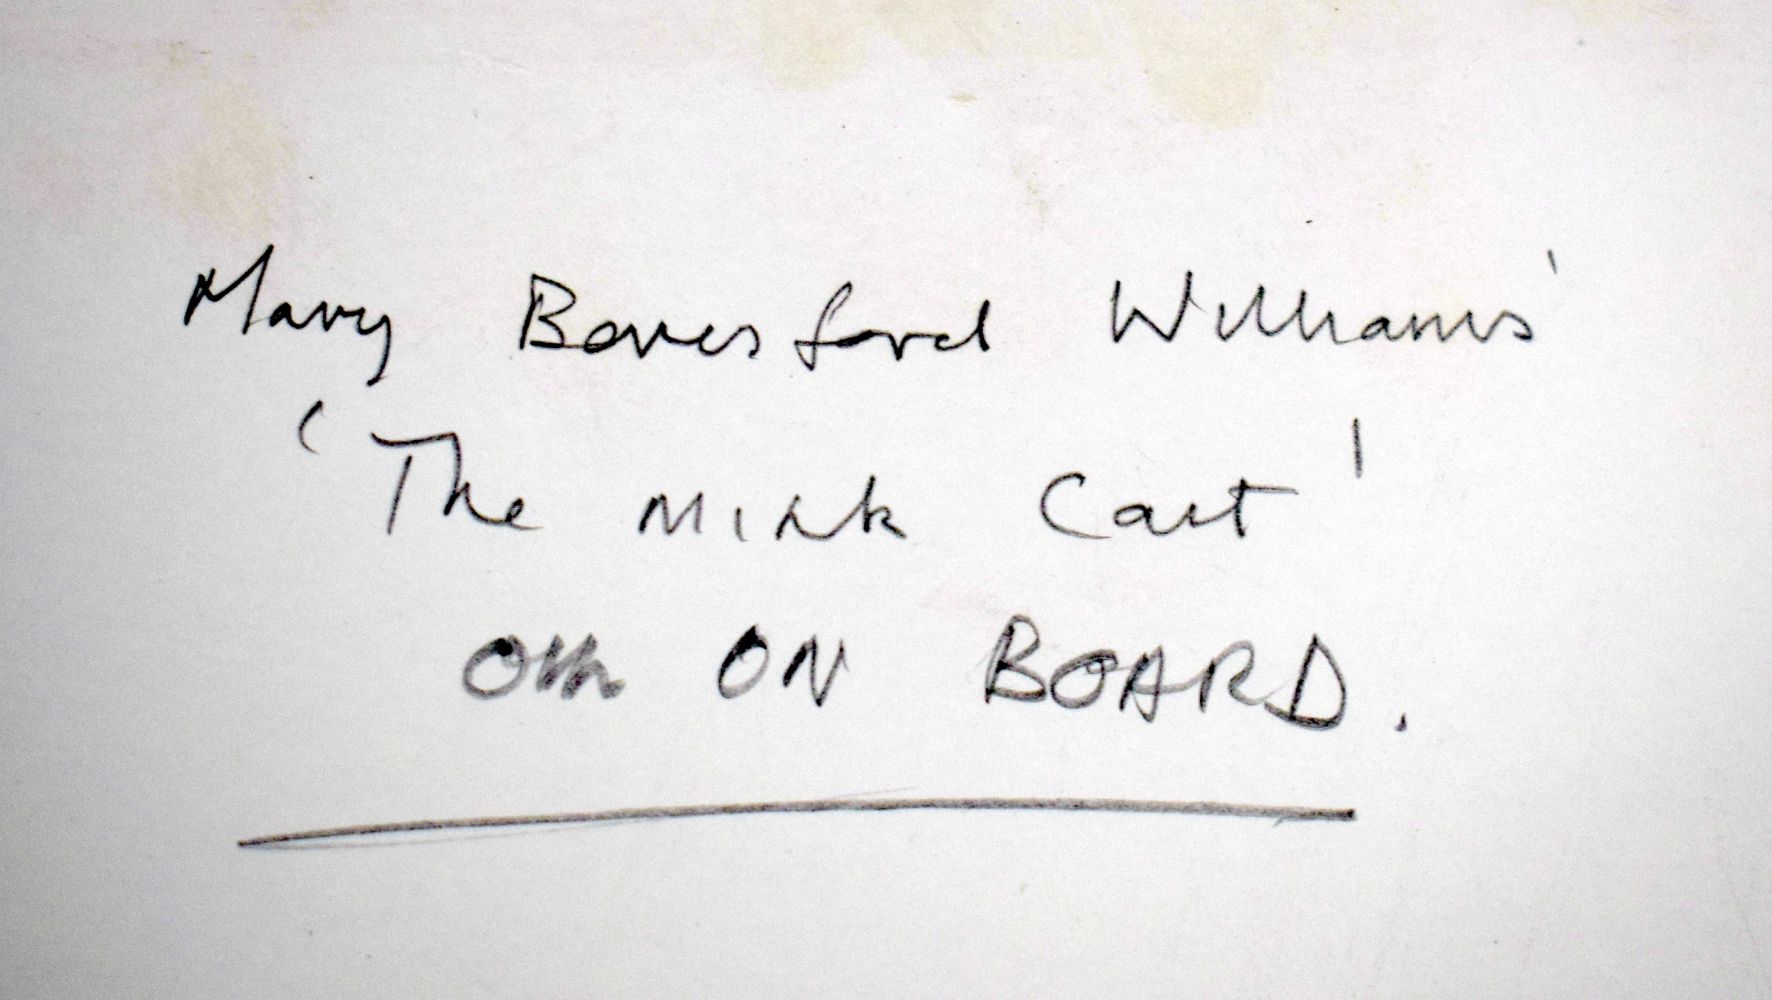 Mary Beresford Williams'
'The Mink Coat'
Oil ON BOARD.